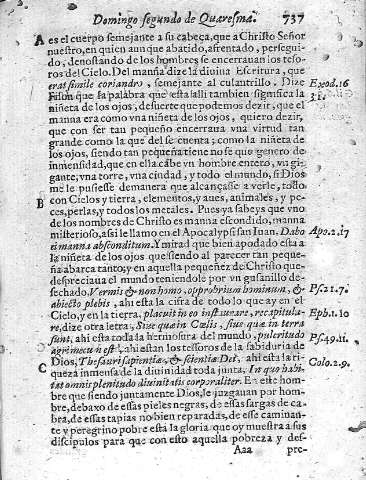 Domingo segundo de Quaresma. 737
A es el cuerpo semejante a su cabeça, que a Christo Señor
nuestro, en quien aunque abatido, afrentado, persegui-
do, denostando de los hombres se encerrauan los teso-
ros del Cielo. Del manna dize la diuina Escritura, que
erat simile coriandro, semejante al culantrillo. Dize Exod. 16
que la palabra que esta alli tambien significa la 31.
niñeta de los ojos, de suerte que podemos dezir, que el
manna era como vna niñeta de los ojos, quiero dezir,
que con ser tan pequeño encerraua vna virtud tan
grande como la que del se cuenta; como la niñeta de
los ojos, siendo tan pequeña tiene no se que genero de
inmensidad, que en ella cabe vn hombre entero, vn gi-
gante, vna torre, vna ciudad, y todo el mundo, si Dios
me le pusiesse de manera que alcançasse a verle, todo
B con Cielos y tierra, elementos, y aues, animales, y pe-
ces, perlas, y todos los metales. Pues ya sabeys que vno
de los nombres de Christo es manna escondido, manna
misterioso, assi le llamo en el Apocalypsi san Iuan. Dabo Apo. 2. 17
ei manna absconditum. Y mirad que bien apodado esta a
la niñeta de los ojos que siendo al parecer tan peque-
ña abarca tanto; y en aquella pequeñez de Christo que
despreciaua el mundo teniendole por vn gusanillo de-
sechado. Vermis & non homo, opprobrium hominum, & Ps. 21. 7.
abiectio plebis, ahi esta la cifra de todo lo que ay en el
Cielo, y en la tierra, placuit in eo instaurare, recapitula- Eph. 1. 10
re, dize otra letra, Siue quæ in Cœlis, siue quæ in terra
sunt, ahi esta toda la hermosura del mundo, pulcritudo Ps. 49. 11.
agri mecum est, ahi estan los tesoros de la sabiduria de
C Dios, Thesauri sapientiæ, & scientiæ Dei, ahi esta la ri-
queza inmensa de la diuinidad toda junta, In quo habi- Colo. 2. 9.
tat omnis plenitudo diuinitatis corporaliter. En este hom-
bre que siendo juntamente Dios, le juzgauan por hom-
bre, debaxo de essas pieles negras, de essas sargas de ca-
bra, de essas tapias no bien reparadas, de esse caminan-
te y peregrino pobre està la gloria que oy muestra a sus
discipulos para que con esto aquella pobreza y des-
Aaa pre-